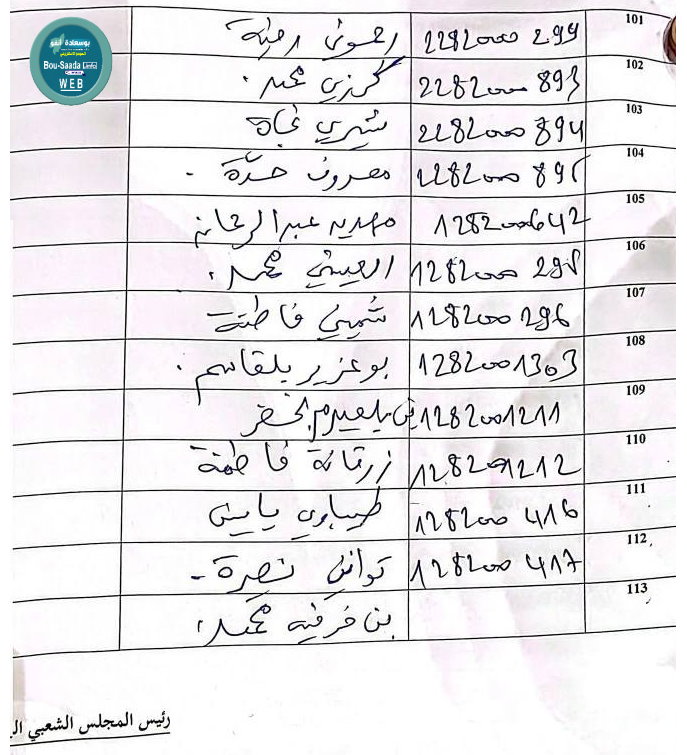 بوسعادة أنفو
Bou-Saada info
WEB
101 2282000 299 رحموني رمية
102 2282000 893 كرزي محمد
103 2282000 894 شيري نجاة
104 2282000 895 معروف حدة
105 128200 642 مهديد عبد الرحمان
106 128200 298 العيشي محمد
107 128200 296 فاطنة
108 128200 1303 بوعزير بلقاسم
109 128200 1211 بن بلعيد م لخضر
110 128200 1212 زرقانة فاطنة
111 128200 416 طيباوي ياسين
112 128200 417 تواتي نصيرة
113 بن فرفية محمد
رئيس المجلس الشعبي